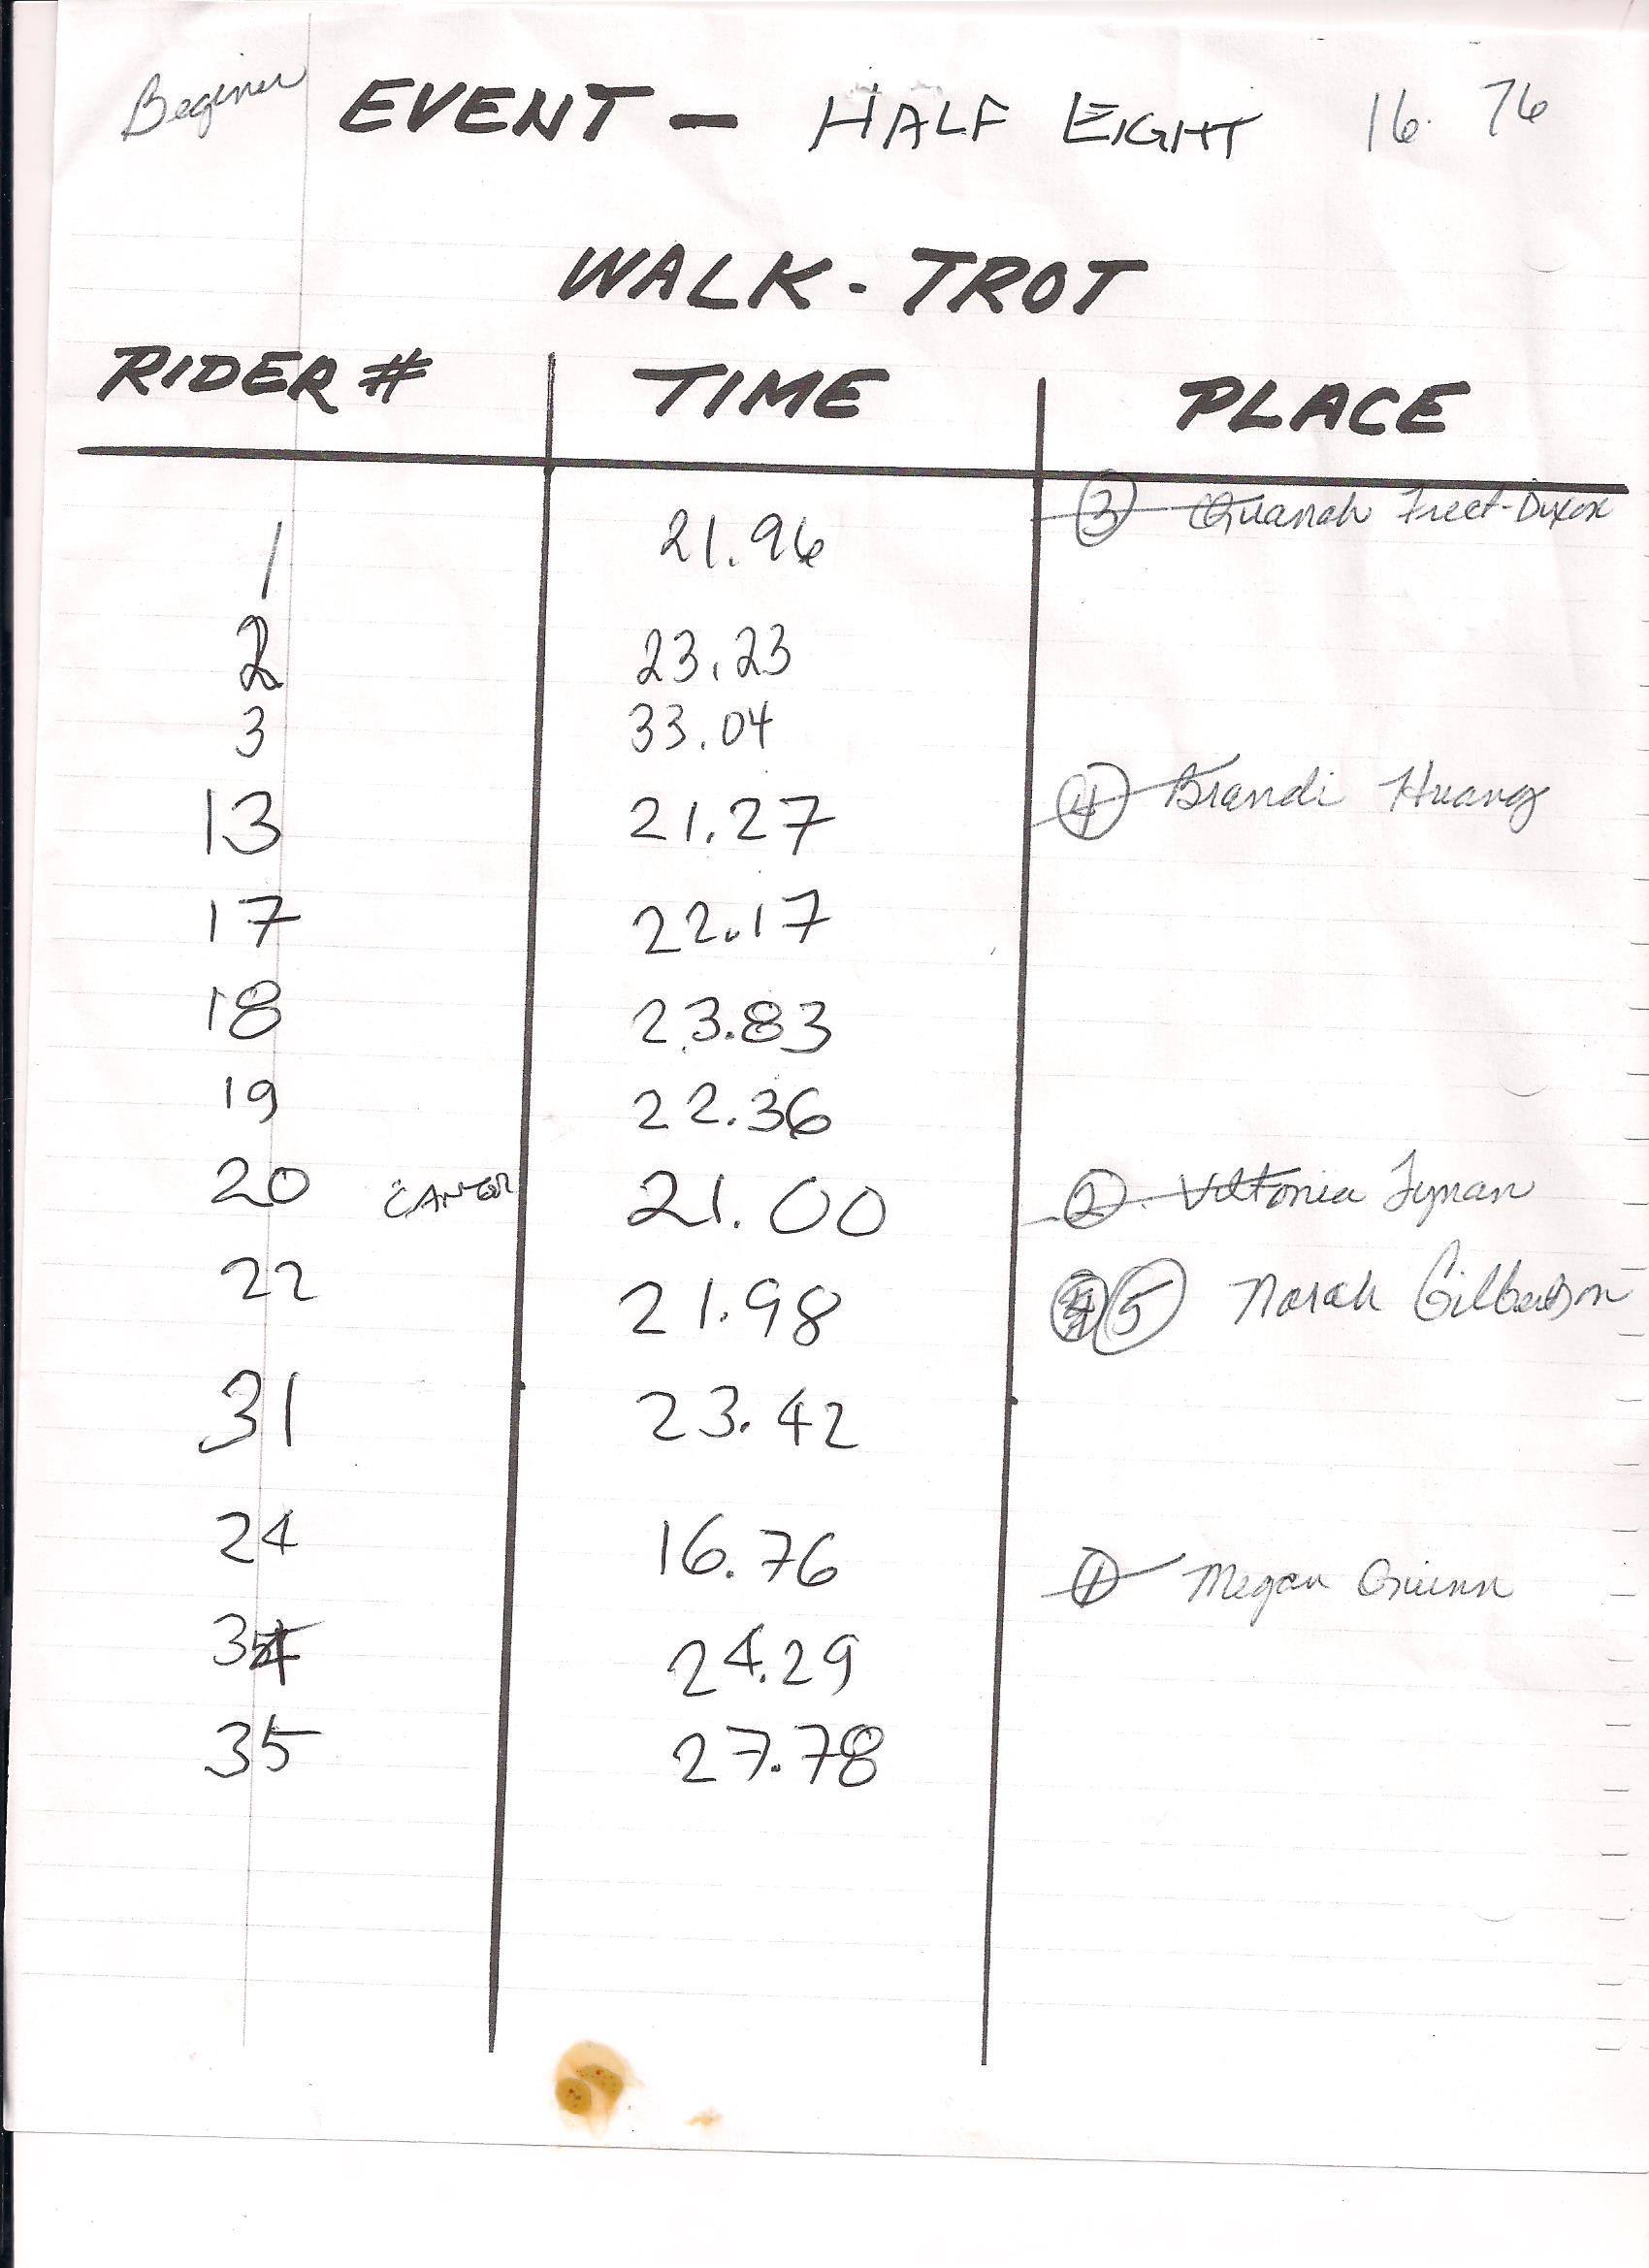 Beginner EVENT - HALF EIGHT 16.76
WALK - TROT
RIDER # TIME PLACE
1 21.96 3 Quanah Freet-Dixon
2 23.23
3 33.04
13 21.27 4 Brandi Huang
17 22.17
18 23.83
19 22.36
20 21.00 2 Lyman
22 21.98 5 Norah Gilbertson
31 23.42
24 16.76 1 Megan Quinn
34 24.29
35 27.78